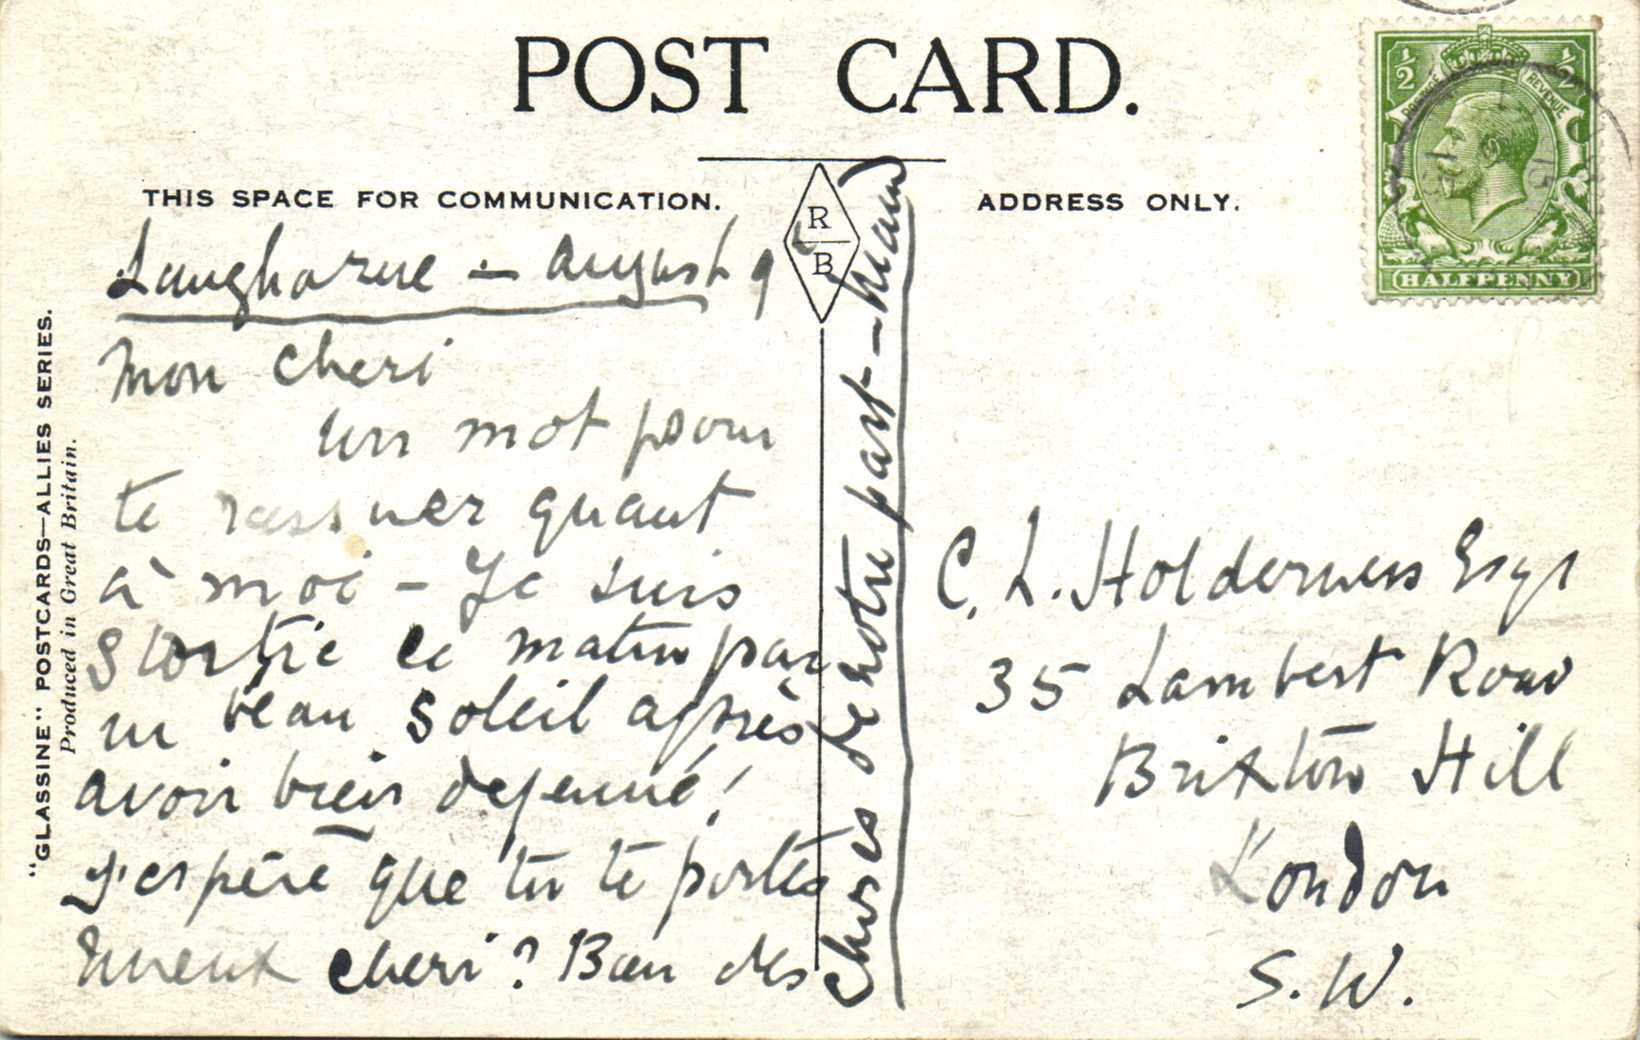 POST CARD.
THIS SPACE FOR COMMUNICATION.
R
B
ADDRESS ONLY.
"GLASSINE" POSTCARDS—ALLIES SERIES.
Produced in Great Britain.
½ ½
REVENUE
HALFPENNY
Laugharne - August 9
Mon cheri
Un mot pour
te quant
à moi - Je suis
sortie ce matin par
un beau soleil après
avoir bien dejeuné!
J'espère que tu te portes
mieux cheri? Bien des
choses de notre part - mami
C. L. Holderness Esqr
35 Lambert Road
Brixton Hill
London
S.W.